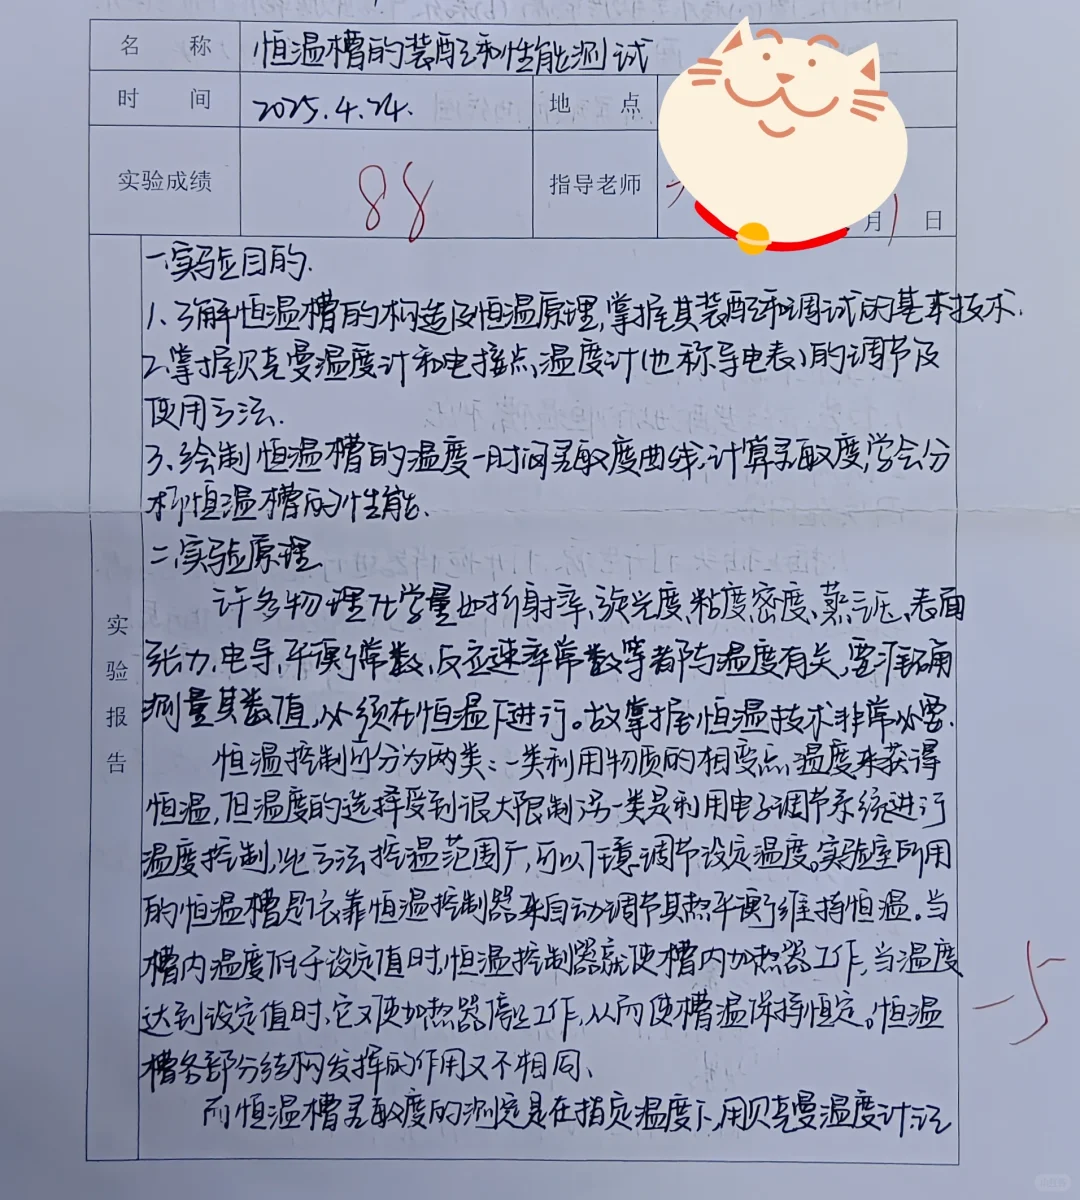 名 称 恒温槽的装配和性能测试
时 间 2025.4.24. 地 点
实验成绩 88 指导老师
月1日
一.实验目的.
1.了解恒温槽的构造及恒温原理,掌握其装配和调试的基本技术.
2.掌握贝克曼温度计和电接点温度计(也称导电表)的调节及
使用方法.
3.绘制恒温槽的温度-时间灵敏度曲线,计算灵敏度,学会分
析恒温槽的性能.
二.实验原理.
许多物理化学量如折射率,旋光度,粘度密度、蒸汽压、表面
张力,电导,平衡常数,反应速率常数等都与温度有关,要准确
测量其数值,必须在恒温下进行。故掌握恒温技术非常必要.
恒温控制可分为两类:一类利用物质的相变点温度来获得
恒温,但温度的选择受到很大限制;另一类是利用电子调节系统进行
温度控制,此方法控温范围广,可以任意调节设定温度。实验室所用
的恒温槽是依靠恒温控制器来自动调节其热平衡维持恒温。当
槽内温度低于设定值时,恒温控制器就使槽内加热器工作,当温度
达到设定值时,它又使加热器停止工作,从而使槽温保持恒定。恒温
槽各部分结构发挥的作用又不相同、
而恒温槽灵敏度的测定是在指定温度下,用贝克曼温度计记
实
验
报
告
-5